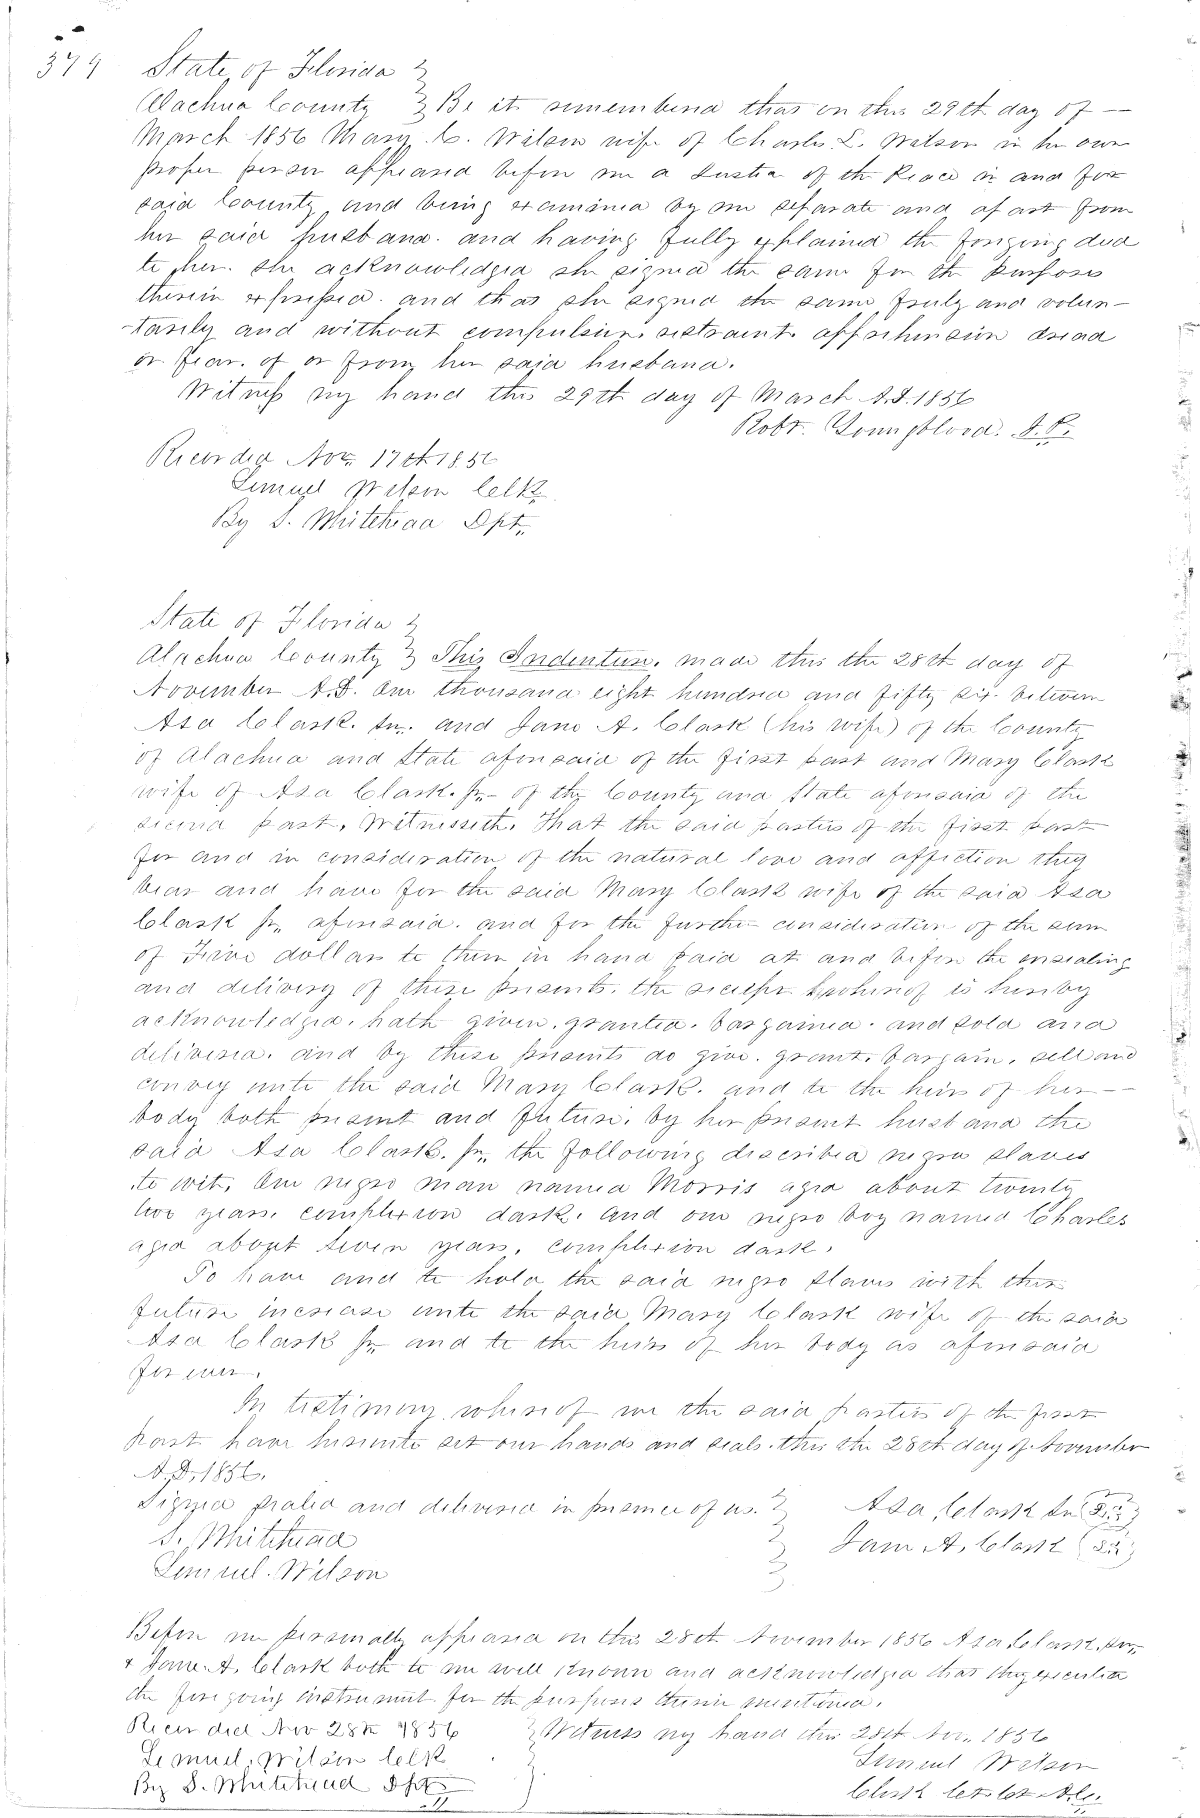 379
State of Florida }
Alachua County } Be it remembered that on this 29th day of —
March 1856 Mary C. Wilson wife of Charles L. Wilson in her own
proper person appeared before me a Justice of the Peace in and for
said County and being examined by me separate and apart from
her said husband. and having fully explained the forgoing deed
to her. she acknowledged she signed the same for the purposes
therein expressed. and that she signed the same freely and volun-
-tarily and without compulsion. restraint. apprehension dread
or fear. of or from her said husband.
Witness my hand this 29th day of March A.D. 1856
Robt. Youngblood. J.P.
Recorded Nov. 17th 1856
Lemuel Wilson Clk
By S. Whitehead Dpt.
State of Florida }
Alachua County } This Indenture. made this the 28th day of
November A.D. One thousand eight hundred and fifty six. between
Asa Clark. Sr. and Jane A. Clark (his wife) of the County
of Alachua and State aforesaid of the first part and Mary Clark
wife of Asa Clark. Jr. of the County and State aforesaid of the
second part. Witnesseth. That the said parties of the first part
for and in consideration of the natural love and affection they
bear and have for the said Mary Clark wife of the said Asa
Clark Jr. aforesaid. and for the further consideration of the sum
of Five dollars to them in hand paid at and before the ensealing
and delivery of these presents. the receipt whereof is hereby
acknowledged. hath given. granted. bargained. and sold and
delivered. and by these presents do give. grant. bargain. sell and
convey unto the said Mary Clark. and to the heirs of her —
body both present and future. by her present husband the
said Asa Clark. Jr. the following described negro slaves
to wit. One negro man named Morris aged about twenty
two years. complexion dark. And one negro boy named Charles
aged about seven years. complexion dark.
To have and to hold the said negro slaves with their
future increase unto the said Mary Clark wife of the said
Asa Clark Jr. and to the heirs of her body as aforesaid
for ever.
In testimony whereof we the said parties of the first
part have hereunto set our hands and seals. this the 28th day of November
A.D. 1856.
Signed sealed and delivered in presence of us. } Asa Clark Sr
S. Whitehead } Jane A. Clark
Lemuel. Wilson }
Before me personally appeared on this 28th November 1856 Asa Clark. Sr.
& Jane. A. Clark both to me well known and acknowledged that they executed
the foregoing instrument for the purposes therein mentioned.
Recorded Nov 28th 1856 } Witness my hand this 28th Nov. 1856
Lemuel. Wilson Clk } Lemuel Wilson
By S. Whitehead Dpt } Clerk